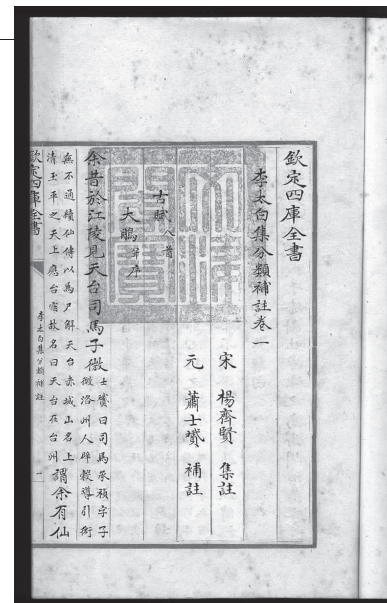 欽定四庫全書
李太白集分類補註卷一
宋 楊齊賢 集註
元 蕭士贇 補註
古賦八首
大鵬賦并序
余昔於江陵見天台司馬子微士贇曰司馬承禎字子
微洛州人辟穀導引術
無不通積仙傳以爲尸解天台赤城山名上
清玉平之天上應台宿故名曰天台在台州謂余有仙
欽定四庫全書
李太白集分類補註
一